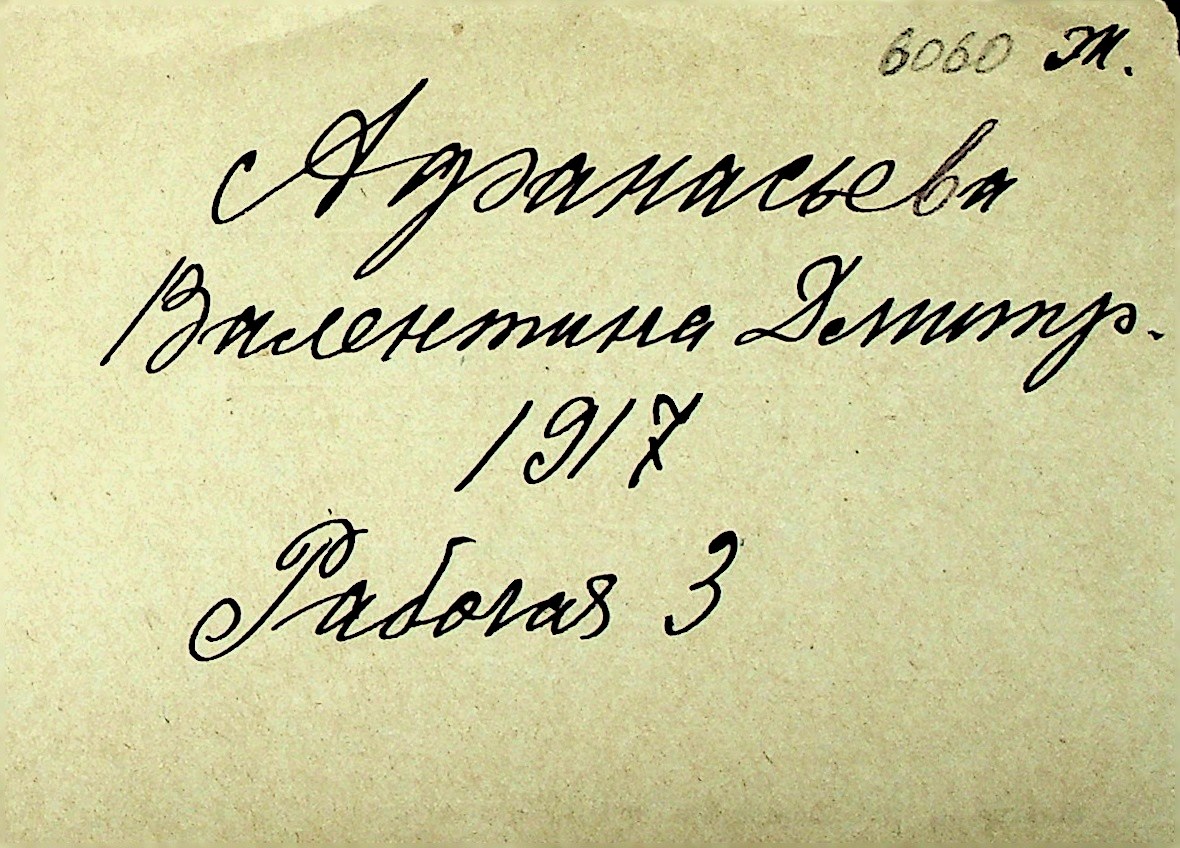 6060 Ж.
Афанасьева
Валентина Дмитр.
1917
Рабочая 3